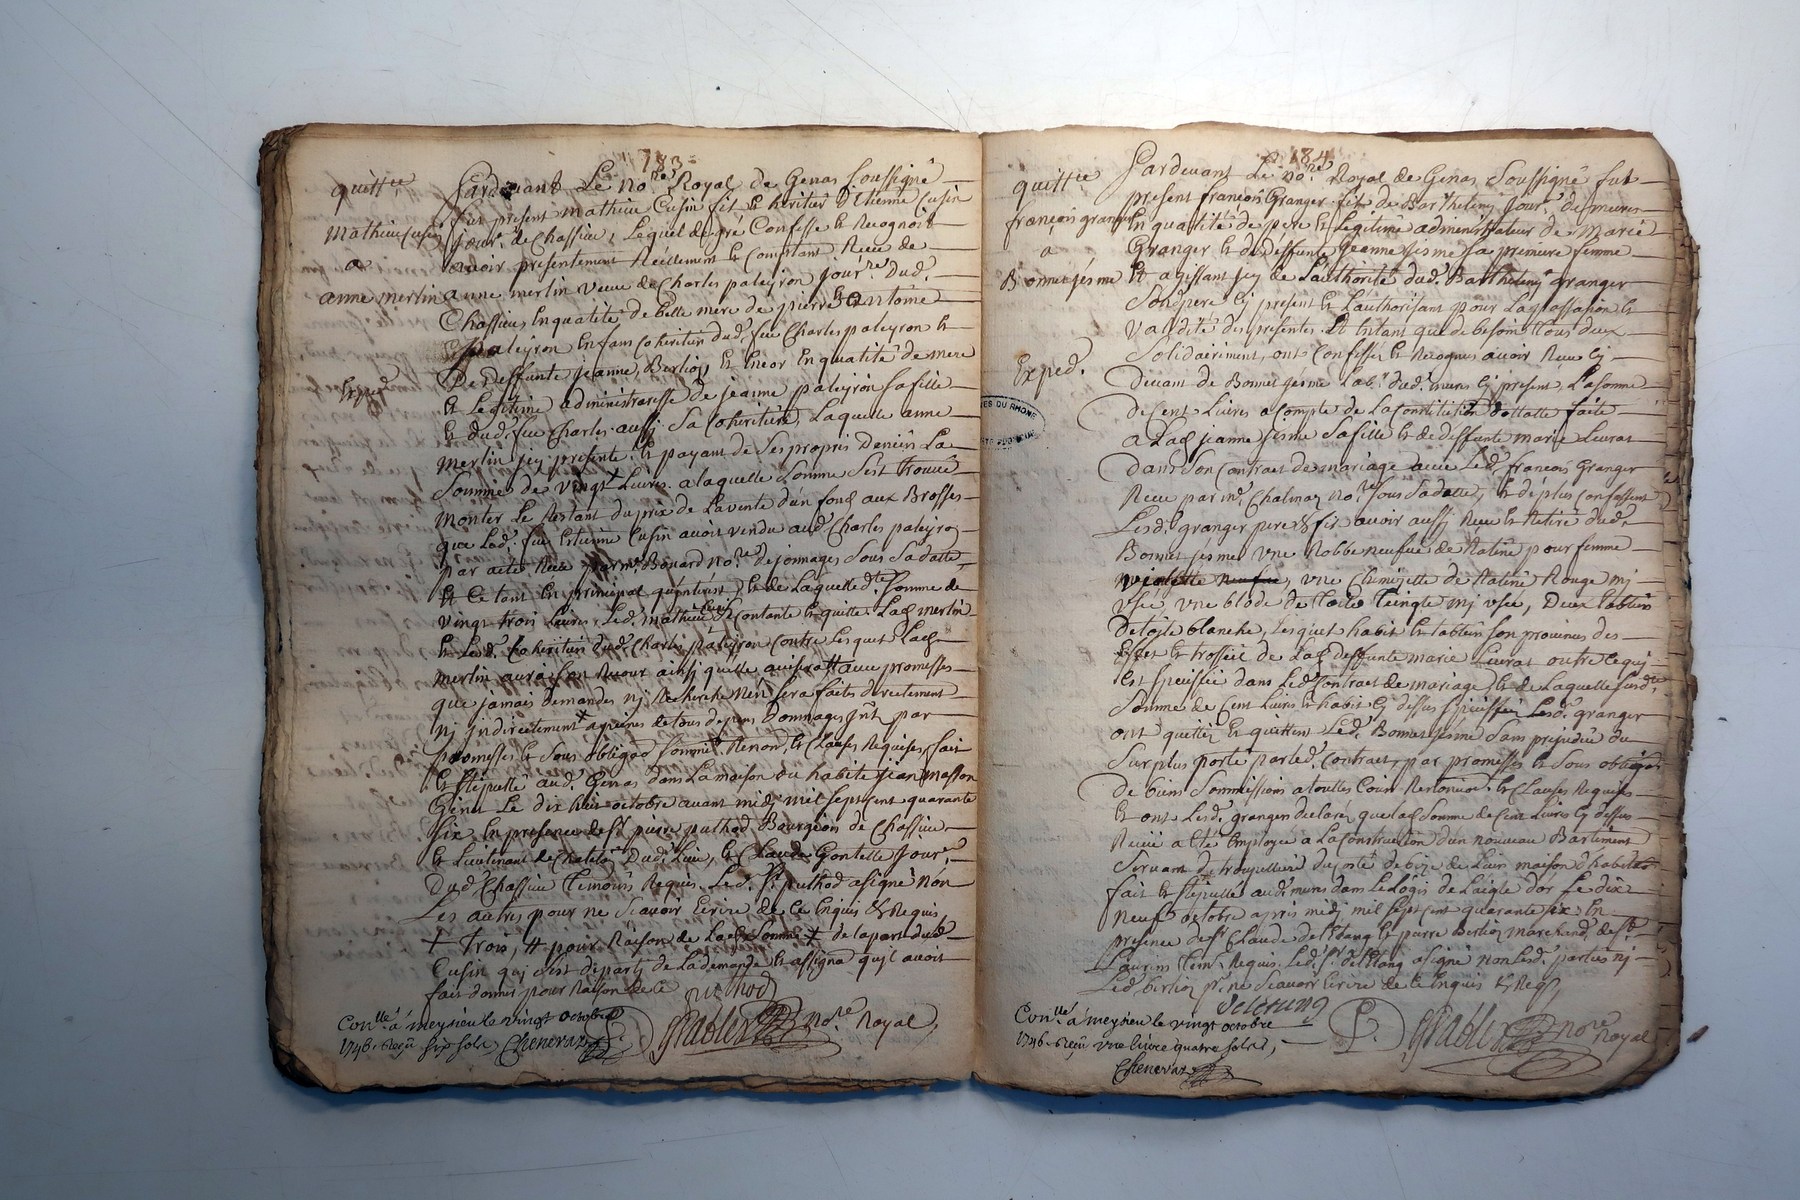 783
quitt.ce
Mathieu Cusin
a
anne merlin
Exped.
Pardevant Le No.re Royal de Genas soussigné
fut present mathieu Cusin fils et heritier d'Etienne Cusin
jour.r de Chassieu, Lequel de gré Confesse et Recognoit
avoir presentement Reellement et Comptant Receu de
anne merlin veuve de Charles paleyron jour.re dud.
Chassieu En qualité de belle mere de pierre et antoine
paleyron Enfans Coheritiers dud. feu Charles paleyron et
De deffunte jeanne Berlioz, et Encor En qualité de mere
et Legitime administraresse de jeanne paleyron sa fille
et dud. feu Charles aussy sa Coheritiere, Laquelle anne
merlin jcy presente et payant de Ses propres Deniers La
Somme de vingt Livres a laquelle Somme S'est trouvé
monter Le Restant du prix de La vente d'un fond aux Brosses
que Led. feu Estienne Cusin avoit vendu aud. Charles paleyron
par acte Receu par m.e Bonard No.re de jonnages Sous Sa datte
Et Ce tant En principal qu'intérest, et de Laquelle d.te Somme de
vingt trois Livres, Led. mathieu Cusin se Contante et quitte Lad. merlin
et Led. Coheritiers dud. Charles paleyron Contre Lesquels Lad.
merlin aura son Recour ainsy quelle avisera ++ avec promesses
que jamais Demandes nj Recherche N'En sera faite directement
nj jndirectement a peines de tous depens Dommages jnt. par
promesses et Sous obligaon Soumis.on Renon.on et Clauses Requises, fait
Et Stipullé aud. Genas dans La maison ou habite jean masson
Genas Le dix huit octobre avant midj mil Sept Cent quarante
Six En presence de S.r pierre puthod Bourgeois de Chassieu
Et Lieutenant de Chatel.n Dud. Lieu, et Claude Gontelle Jour.r
Dud. Chassieu temoins Requis. Led. S.r puthod a signé Non
Les autres pour ne Scavoir Ecrire de Ce Enquis et Requis
+ trois, ++ pour Raison de Lad. Somme + de la part dud.
Cusin quj s'est departj de La demande et assigna.on qu'il avoit
fait donner pour Raison de Ce
puthod
No.re Royal
Con.llé a meysieu le vingt octobre
1746. Reçu six sols, Chenevaz
784
quitt.ce
françois granger
a
Bonnet jesme
Exped.
Pardevant Le No.re Royal de Genas Soussigné fut
present francois Granger fils de Barthelemy Jour.r de mures
En qualité de pere et Legitime administrateur de marie
Granger et de deffunte Jeanne Jesme Sa premiere femme
Et agissant jcy de L'authorité dud. Barthelemy granger
Son pere Cy present et L'authorisant pour La passation et
validité des presentes. Et Entant que de besoin Tous deux
Solidairement, ont Confessés et Recognus avoir Receu Cy
Devant de Bonnet jesme Lab.r dud. mures Cy present, La Somme
De Cent Livres a Compte de La Constitution dottalle faite
a Lad. jeanne jesme Sa fille et de deffunte marie Livrat
Dans Son Contrat de mariage avec Led. francois Granger
Receu par m.e Chalmas No.re Sous Sa datte, et de plus Confessent
Lesd. granger pere et fils avoir aussy Receu et Retiré dud.
Bonnet jesme vne Robbe neufve de Ratine pour femme
violette neufve, vne Chemizette de Ratine Rouge mj
vsée vne blode de Toile Teingte mj vsée, Deux tabliers
De toile blanche, Lesquels habits et tabliers Son provenus des
Effets et trosseil de Lad. deffunte marie Livrat outre Ce quj
Est Speciffié dans Led. Contract de mariage, et de Laquelle Susd.te
Somme de Cent Livres et habits Cy dessus Speciffiés Lesd. granger
ont quittés et quittent Led. Bonnet jesme Sans prejudice du
Surplus porté par Led. Contrat, par promesses et Sous obliga.on
De biens Soumissions a touttes Cours Renon.on et Clauses Requises
Et ont Lesd. granger declarés que Lad. Somme de Cent Livres Cy dessus
Receue a Eté Employée a La Construction d'un nouveau Bastiment
fait et Stipullé aud. mures dans Le Logis de L'aigle d'or Le dix
Neuf octobre apres midj mil Sept Cent quarante Six En
presence de S.r Claude de L'Etang et pierre Berlioz marchand de S.t
Laurens tem. Requis. Led. S.r de L'Etang a signé non Lesd. parties nj
Led. Berlioz p.r ne Scavoir Ecrire de Ce Enquis et Req.
Deletang
No.re Royal
Con.llé a meysieu le vingt octobre
1746. Reçu vne livre quatre sols,
Chenevaz